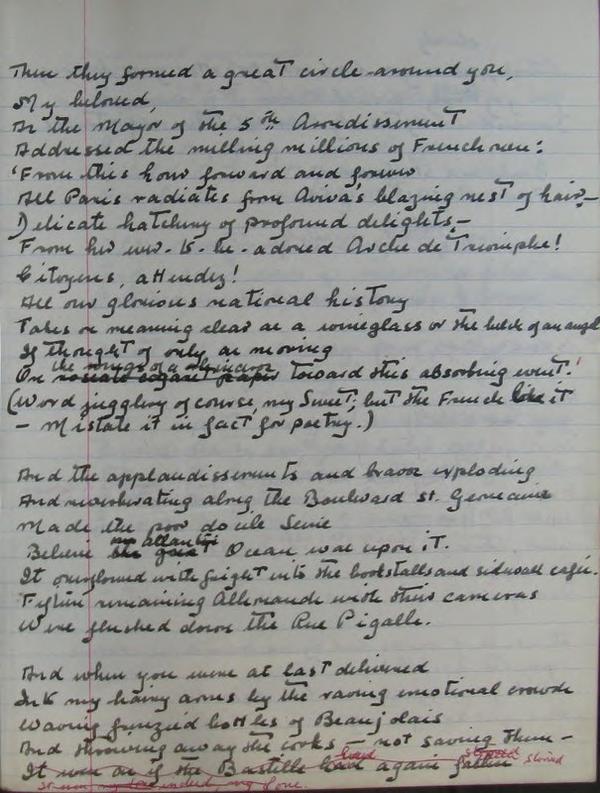 Then they formed a great circle around you,
My beloved,
As the Mayor of the 5th Arondissement
Addressed the milling millions of Frenchmen:
'From this hour forward and forever
All Paris radiates from Aviva's blazing nest of hair,—
Delicate hatchery of profound delights,—
From her ever-to-be-adored Arche de Triomphe!
Citoyens, attendez!
All our glorious national history
Takes on meaning clear as a wineglass or the belch of an angel
If thought of only as moving
the wings of a
On toward this absorbing event.'
(Word jugglery of course, my Sweet; but the French like it
— Mistake it in fact for poetry.)
And the applaudissements and bravos exploding
And reverberating along the Boulevard St. Germaine
Made the poor docile Seine
my atlantic
Believe the great Ocean was upon it.
It overflowed with fright into the bookstalls and sidewalk cafés.
Fifteen remaining Allemands with their cameras
Were flushed down the Rue Pigalle.
And when you were at last delivered
Into my hairy arms by the raving emotional crowds
Waving frenzied bottles of Beaujolais
And throwing away the corks — not saving them —
It was as if the Bastille had again fallen